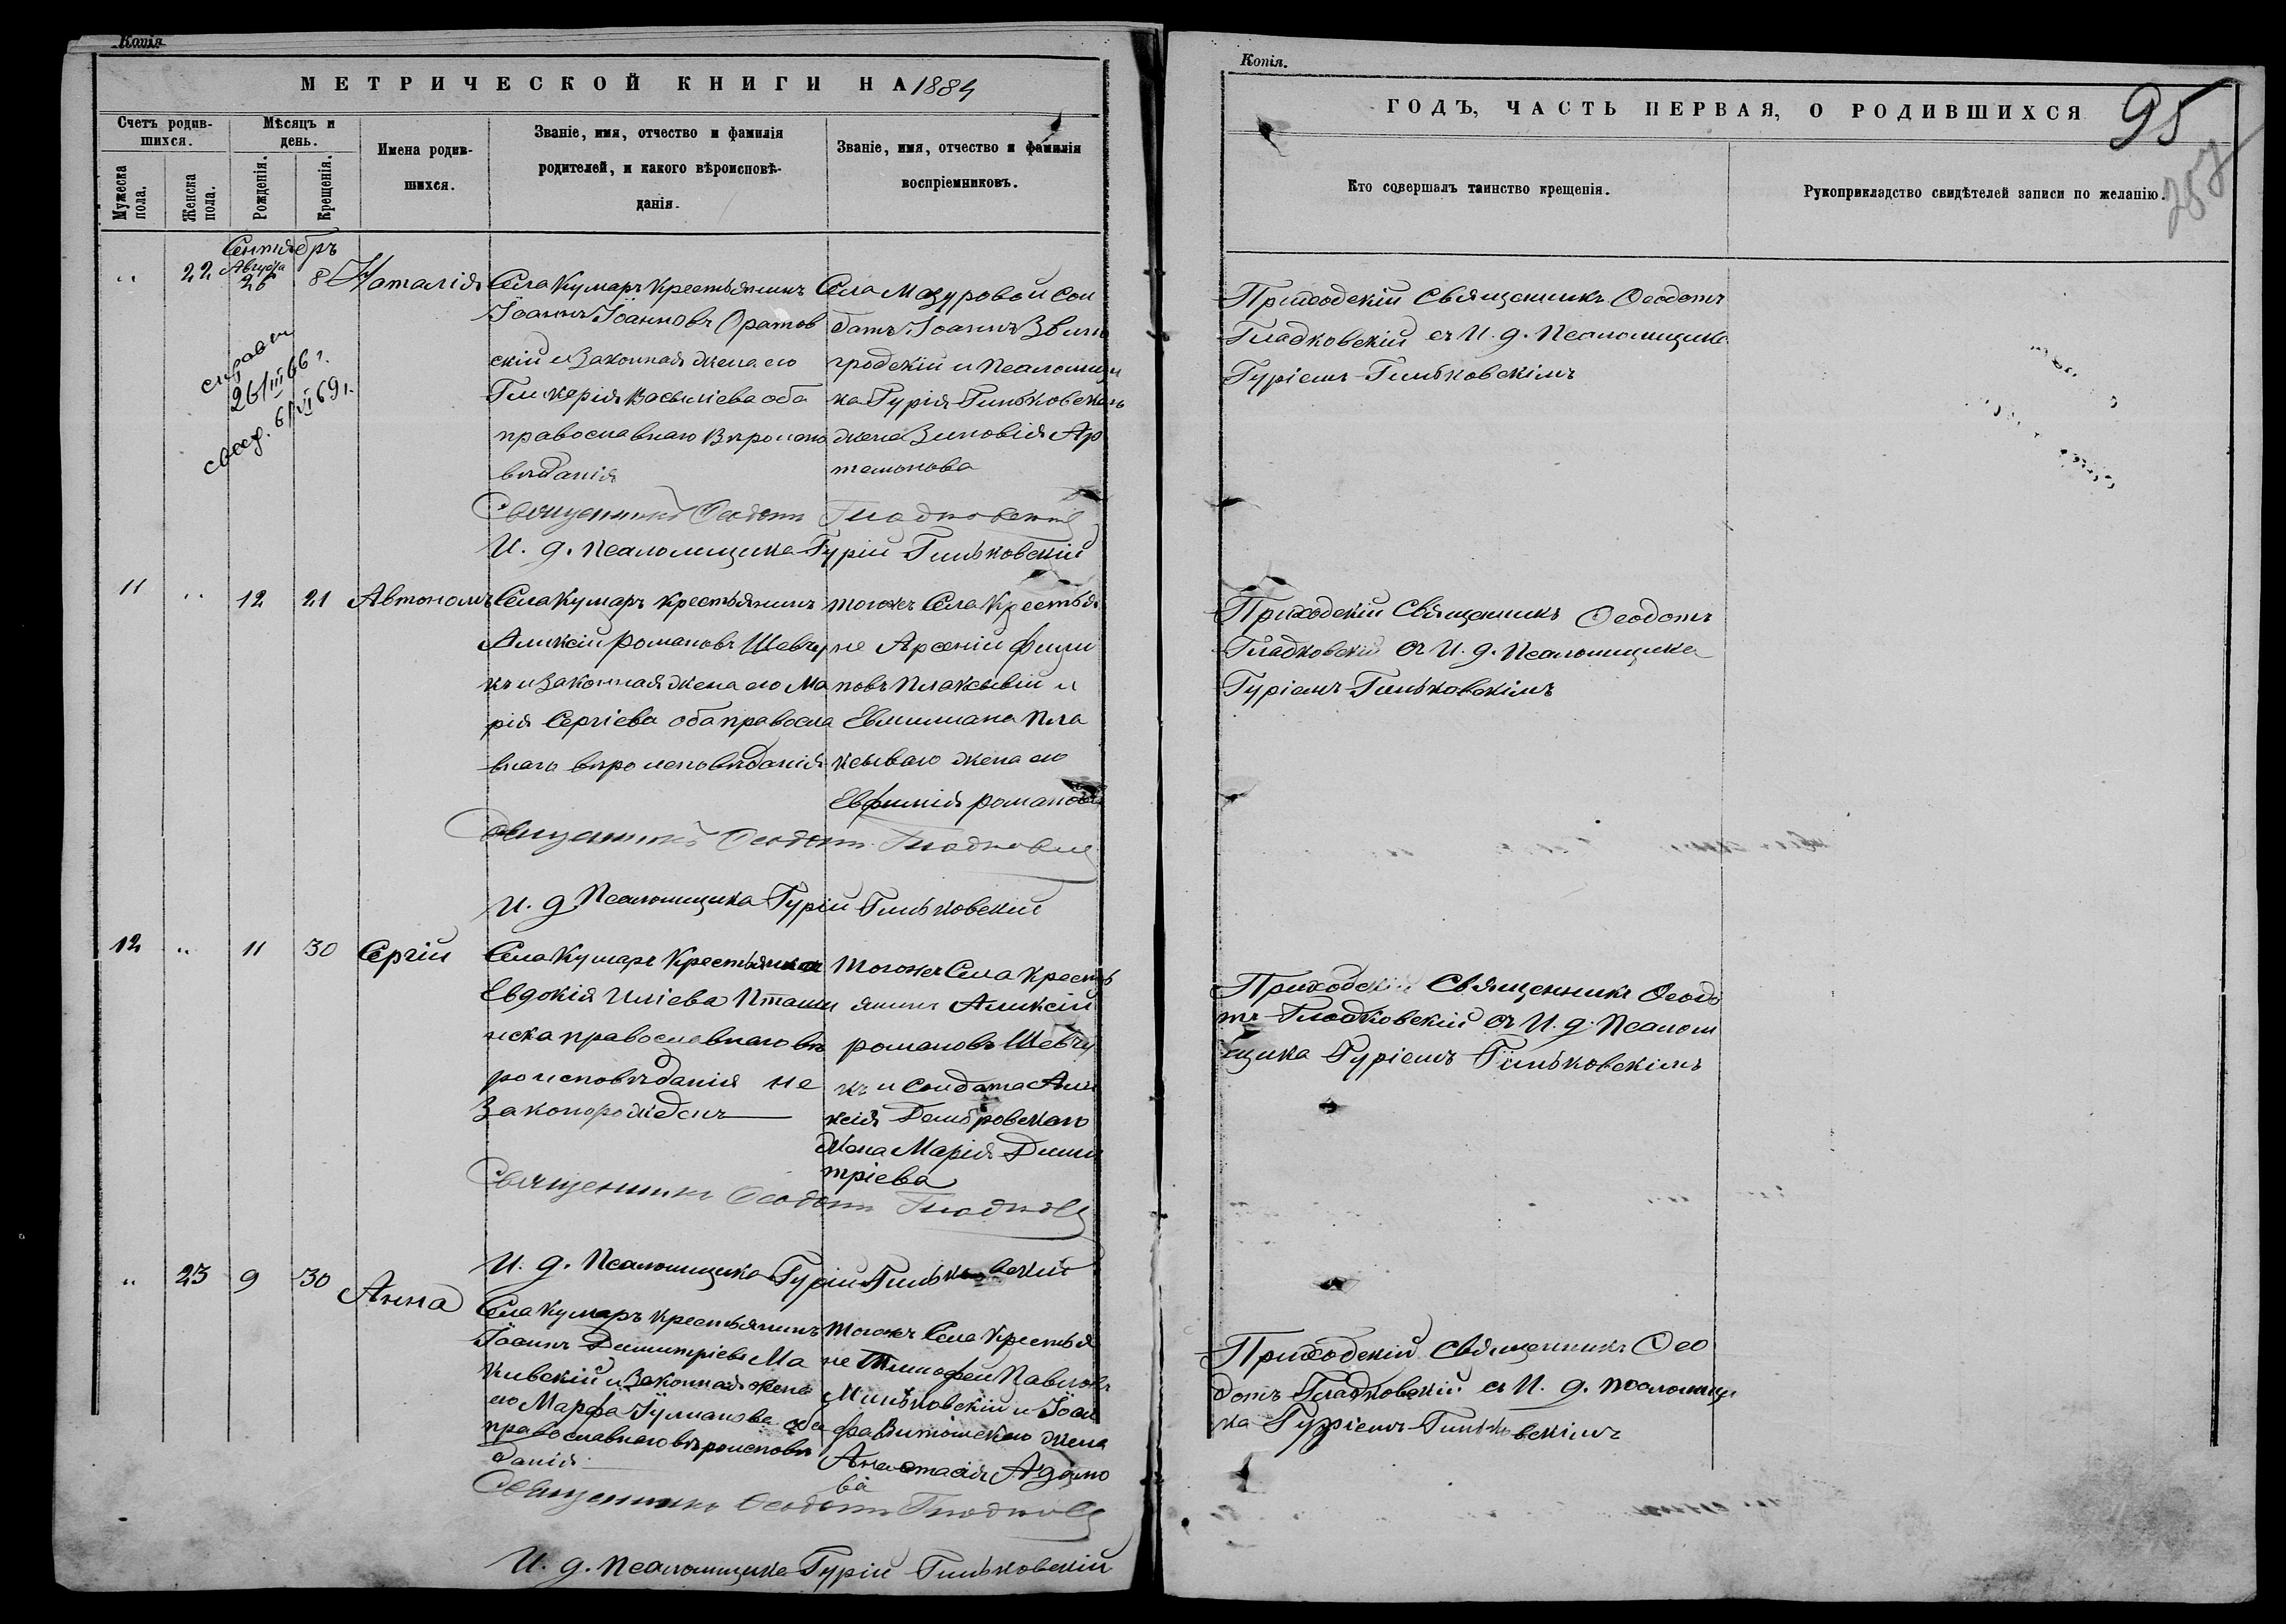 Копія
МЕТРИЧЕСКОЙ КНИГИ НА 1884
Счетъ родив-
шихся.
Мѣсяцъ и
день.
Имена родив-
шихся.
Званіе, имя, отчество и фамилія
родителей, и какого вѣроисповѣ-
данія.
Званіе, имя, отчество и фамилія
воспріемниковъ.
Мужеска
пола.
Женска
пола.
Рожденія.
Крещенія.
Сентябрь
22
Августа
26
8
Наталія
Села Кумаръ Крестьянинъ
Іоаннъ Іоанновъ Оратов
скій и Законная жена его
Гликерія Василіева оба
православнаго Вѣроиспо
вѣданія
Села Мазуровой Сол
датъ Іоаннъ Звино
гродскій и Псаломщи
ка Гурія Гиньковскаго
жена Зиновія Ар
тамонова
26/III 66 г.
6/VI 69 г.
Священникъ Ѳеодотъ Гладковскій
И. д. Псаломщика Гурій Гиньковскій
11
12
21
Автономъ
Села Кумаръ Крестьянинъ
Аликсій Романовъ Шевчу
къ и Законная жена его Ма
рія Сергіева оба правосла
внаго вѣроисповѣданія
Тогоже Села Крестья
не Арсеній Фили
повъ Плаксывій и
Евлимпана Пла
ксываго жена его
Евфимія Романова
Священникъ Ѳеодотъ Гладковскій
И. д Псаломщика Гурій Гиньковскій
12
11
30
Сергій
Села Кумаръ Крестьянка
Евдокія Иліева Пташи
нска православнаго вѣ
роисповѣданія не
Законорожденъ
Тогоже Села Кресть
янинъ Аликсій
Романовъ Шевчу
къ и Солдата Али
ксія Домбровскаго
Жена Марія Дими
тріева
Священникъ Ѳеодотъ Гладковс
И. д. Псаломщика Гурій Гиньковскій
23
9
30
Анна
Села Кумаръ Крестьянинъ
Іоаннъ Димитріевъ Ма
кивскій и Законная жена
его Марфа Іулианова оба
православнаго вѣроисповѣ
данія
Тогоже Села Крестья
не Тимофей Павловъ
Миньковскій и Іоси
фа Витошскаго жена
Анастасія Адамо
ва
Священникъ Ѳеодотъ Гладковс
И. д. Псаломщика Гурій Гиньковскій
Копія.
ГОДЪ, ЧАСТЬ ПЕРВАЯ, О РОДИВШИХСЯ
95
257
Кто совершалъ таинство крещенія.
Рукоприкладство свидѣтелей записи по желанію.
Приходскій Священникъ Ѳеодотъ
Гладковскій съ И. д. Псаломщика
Гуріемъ Гиньковскімъ
Приходскій Священникъ Ѳеодотъ
Гладковскій съ И. д. Псаломщика
Гуріемъ Гиньковскімъ
Приходскій Священникъ Ѳеодо
тъ Гладковскій съ И. д. Псалом
щика Гуріемъ Гиньковскімъ
Приходскій Священникъ Ѳео
дотъ Гладковскій съ И. д. Псаломщи
ка Гуріемъ Гиньковскімъ